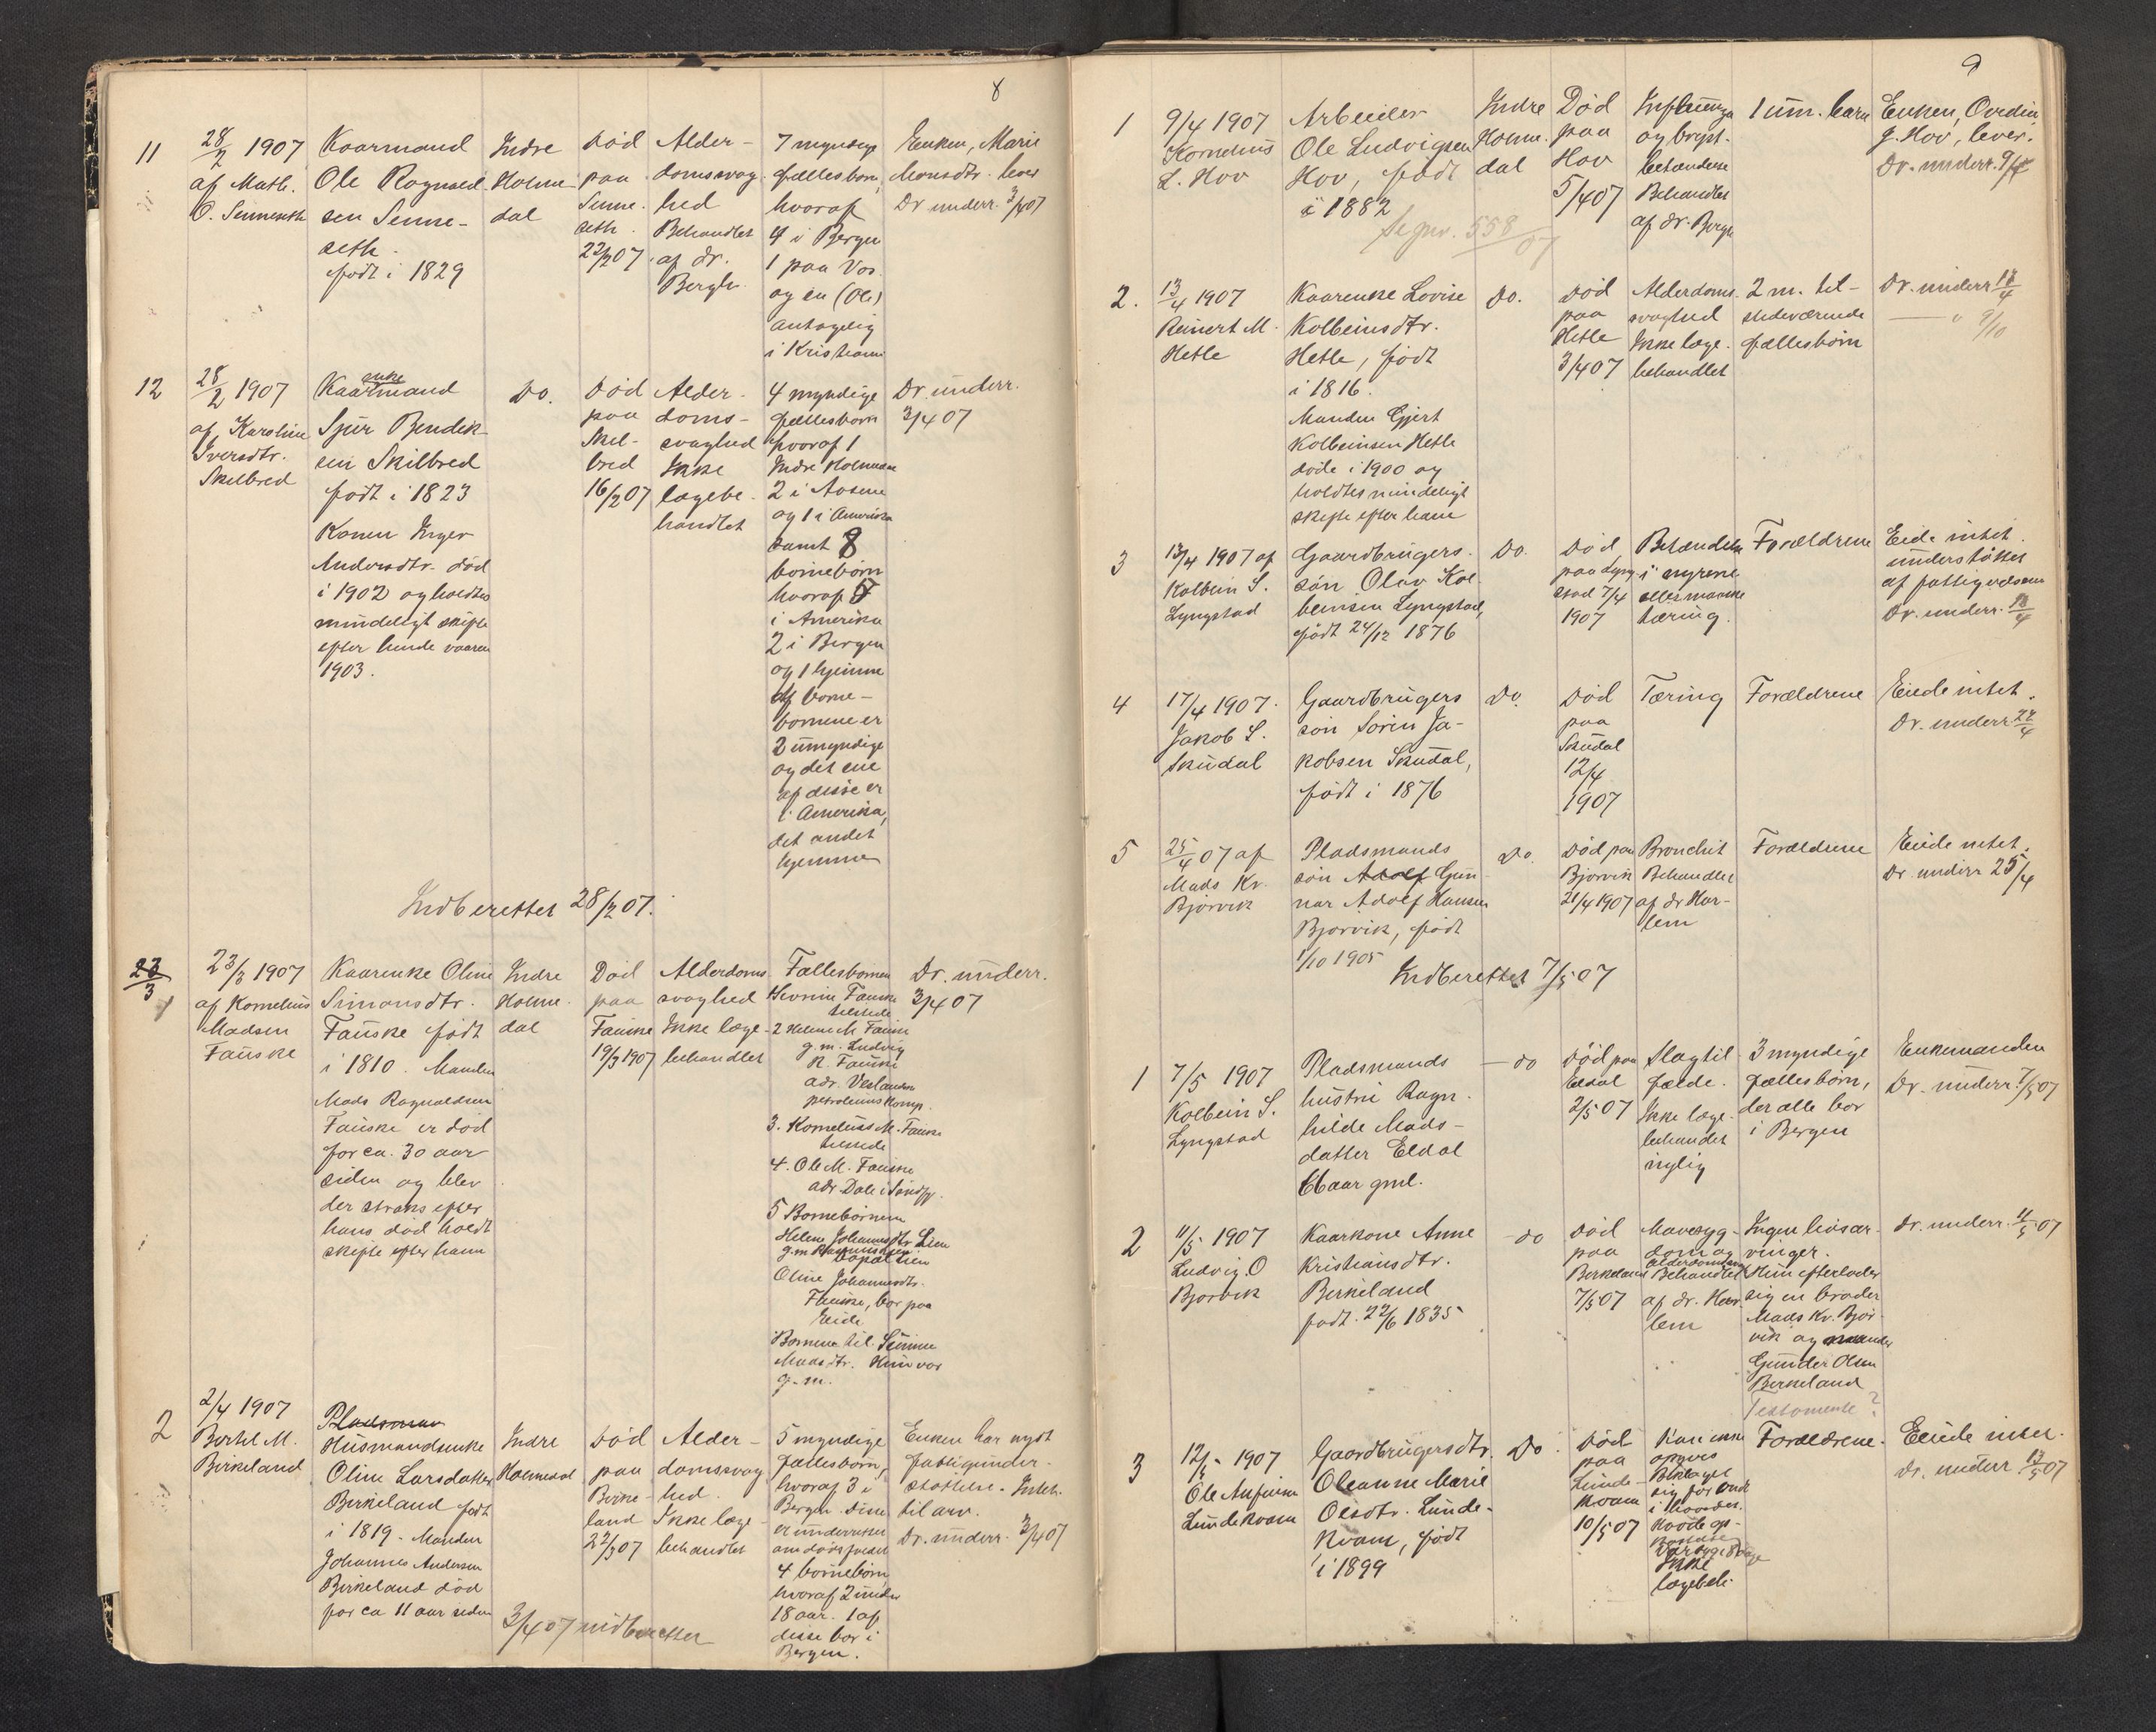 8
11
28/2 1907
af Math.
O. Senneseth
Kaarmand
Ole Ragnald
sen Senne-
seth.
født i 1829
Indre
Holme
dal
Død
paa
Senne-
seth.
22/2 07
Alder-
domssvag-
hed
Behandlet
af dr.
Bergh
7 myndige
fællesbørn,
hvoraf
4 i Bergen
1 paa Vos
og en (Ole)
antagelig
i Kristiania
Enken, Marie
Monsdtr. lever
Dr underr. 3/4 07
12
28/2 1907
af Karoline
Iversdtr.
Skilbred
enke
Kaarmand
Sjur Bendik-
sen Skilbred
født i 1823
Konen Inger
Andersdtr. død
i 1902 og holdtes
mindeligt skifte
efter hende vaaren
1903.
Do.
Død
paa
Skil-
bred
16/2 07
Alder-
doms-
svaghed
Ikke
lægebe-
handlet
4 myndige
fællesbørn
hvoraf 1
Indre Holmedal
2 i Askvoll
og 1 i Amerika
samt 8
børnebørn
hvoraf 5
i Amerika
2 i Bergen
og 1 hjemme
Af børne-
børnene er
2 umyndige
og det ene
af disse er
i Amerika,
det andet
hjemme
Dr. underr.
3/4 07
Indberettet 28/2 07.
23/3
1
23/3 1907
af Kornelius
Madsen
Fauske
Kaarenke Oline
Simonsdtr.
Fauske født
i 1810. Manden
Mads Ragnaldsen
Fauske er død
for ca. 30 aar
siden og blev
der straks efter
hans død holdt
skifte efter ham
Indre
Holme-
dal
Død
paa
Fauske
19/3 1907
Alderdoms
svaghed
Ikke læge-
behandlet
Fællesbørnene
Fauske
tilstede
2 Helene M. Fauske
g. m. Ludvig
R. Fauske
adr. Vestlandske
petroleumskomp.
3. Kornelius M. Fauske
tilstede
4. Ole M. Fauske
adr Dale i Søndfj.
5 Børnebørnene
Helene Johannesdtr Lien
g. m. Rasmus
Oline Johannesdtr.
Fauske, bor paa
Eide
Børnene til
Madsdtr. Hun var
g. m.
Dr. underr.
3/4 07
2
2/4 1907
Bertel M.
Birkeland
Pladsman
Husmandsenke
Oline Larsdatter
Birkeland født
i 1819. Manden
Johannes Andersen
Birkeland død
for ca 11 aar siden
Indre
Holmedal
Død
paa
Birke-
land
22/3 07
Alder-
domssvag
hed.
Ikke læge-
behandlet
5 myndige
fællesbørn,
hvoraf 3 i
Bergen. Disse
er underrettet
om dødsfaldet
4 børnebørn
hvoraf 2 under
18 aar. 1 af
disse bor i
Bergen.
Enken har nydt
fattigunder-
støttelse. Intet
til arv.
Dr. underr. 3/4 07
3/4 07 indberettet
9
1
9/4 1907
Kornelius
L. Hov
Arbeider
Ole Ludvigsen
Hov, født
i 1882
Segnr. 558/07
Indre
Holme-
dal
Død
paa
Hov
5/4 07
Influenza
og bryst-
betændelse
Behandlet
af dr. Bergh
1 um. barn
Enken, Ovedia
J. Hov, lever.
Dr. underr. 9/4
2.
13/4 1907
Reinert M.
Hetle
Kaarenke Lovise
Kolbeinsdtr.
Hetle, født
i 1816.
Manden Gjert
Kolbeinsen Hetle
døde i 1900 og
holdtes mindeligt
skifte efter ham
Do.
Død
paa
Hetle
3/4 07
Alderdoms-
svaghed
Ikke læge-
behandlet
2 m. til-
stedeværende
fællesbørn
Dr. underr. 18/4
— " 9/10
3
13/4 1907 af
Kolbein S.
Lyngstad
Gaardbrugers-
søn Olav Kol-
beinsen Lyngstad,
født 24/12 1876
Do.
Død
paa Lyng-
stad 7/4
1907
Betændelse
i nyrene
eller maaske
tæring.
Forældrene
Eide intet.
understøttet
af fattigvæsenet
Dr. underr. 18/4
4
17/4 1907.
Jakob S.
Skudal
Gaardbrugers
søn Sørin Ja-
kobsen Skudal,
født i 1876
Do.
Død
paa
Skudal
12/4
1907
Tæring
Forældrene
Eiede intet.
Dr. underr. 24/4
5
25/4 07 af
Mads Kr.
Bjørvik
Pladsmands
søn Adolf Gun-
nar Adolf Hansen
Bjørvik, født
1/10 1905
Do.
Død paa
Bjørvik
21/4 1907
Bronchit
Behandlet
af dr Har-
lem
Forældrene
Eiede intet.
Dr. underr 25/4
Indberettet 7/5 07
1
7/5 1907
Kolbein S.
Lyngstad
Pladsmands
hustru Ragn-
hilde Mads-
datter Eldal
66 aar gml.
— do
Død paa
Eldal
2/5 07
Slagtil-
fælde.
Ikke læge-
behandlet
nylig
3 myndige
fællesbørn,
der alle bor
i Bergen
Enkemanden
Dr. underr. 7/5 07
2
11/5 1907
Ludvig O
Bjørvik
Kaarkone Anne
Kristiansdtr.
Birkeland
født 22/6 1835
— do
Død
paa
Birkeland
7/5 07
Mavesyg-
dom og
alderdomssvag
Behandlet
af dr. Har-
lem
Ingen livsar-
vinger.
Hun efterlader
sig en broder
Mads Kr. Bjør-
vik og manden
Gunder Olsen
Birkeland
Testamente?
Dr. underr. 11/5 07
3
12/5 1907
Ole Anfinsen
Lundekvam
Gaardbrugersdtr.
Oleanne Marie
Olsdtr. Lunde-
kvam, født
i 1899
Do.
Død
paa
Lunde-
kvam
10/5 07
Kan ikke
opgives
Beklaget
sig for ondt
i hovedet.
Havde op-
kastelse
Var syg 8 dage
Ikke
lægebeh.
Forældrene.
Eiede intet.
Dr. underr 13/5 07